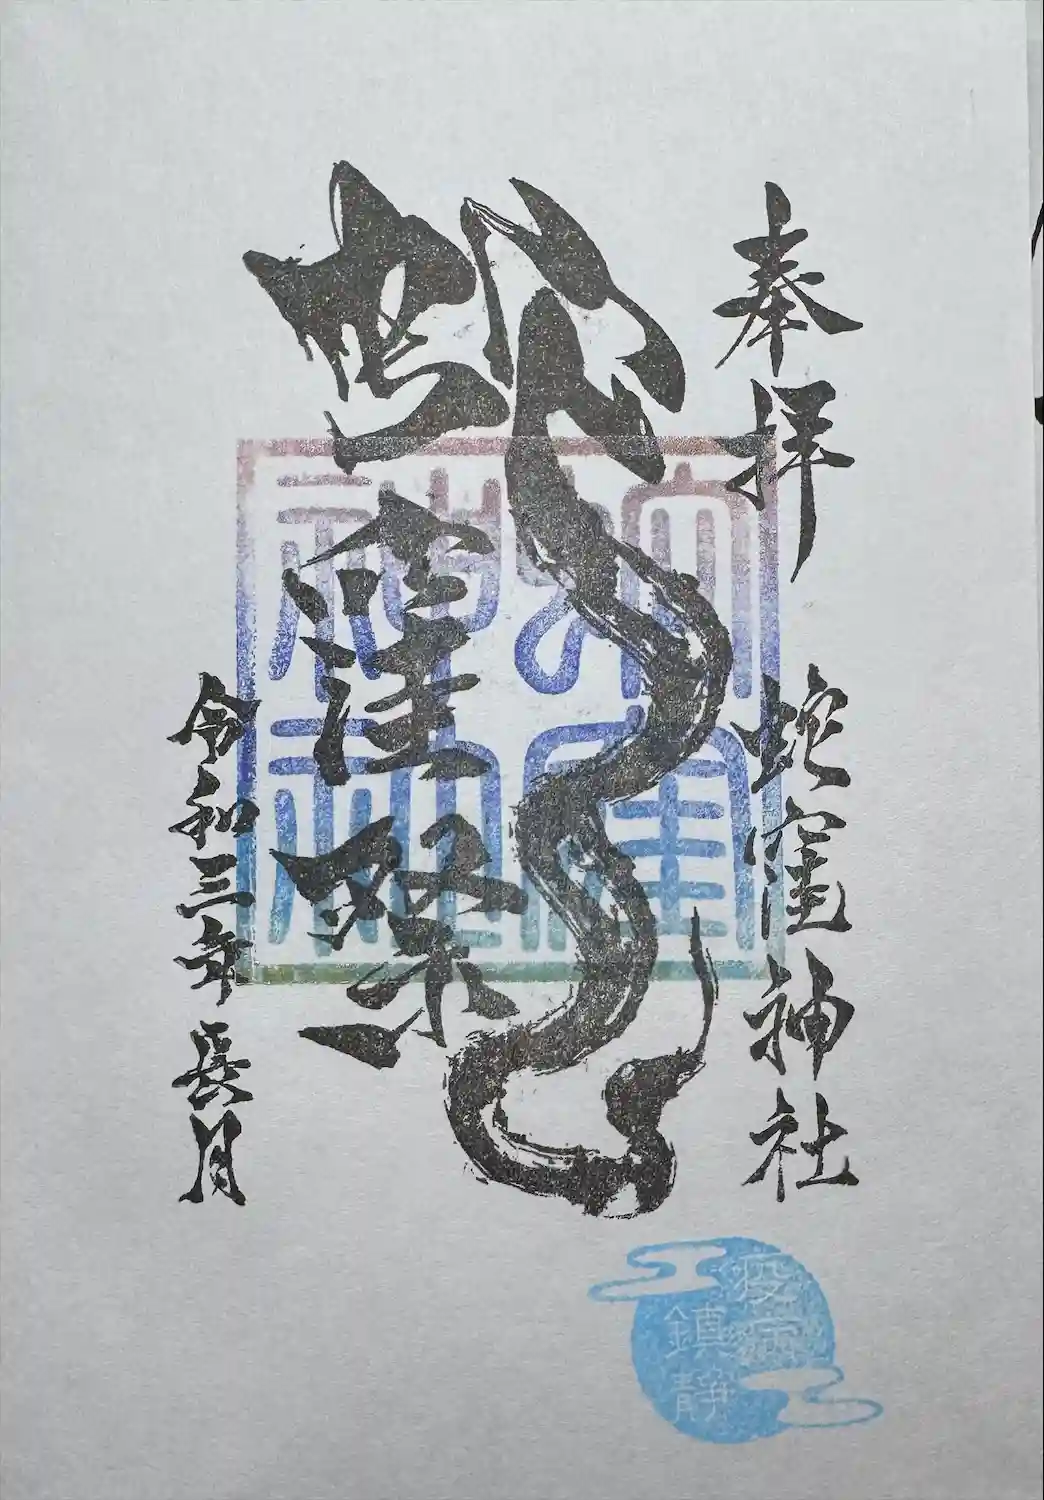 奉拝
蛇窪神社
蛇窪祭
蛇窪
神社
令和三年長月
疫病
鎮静